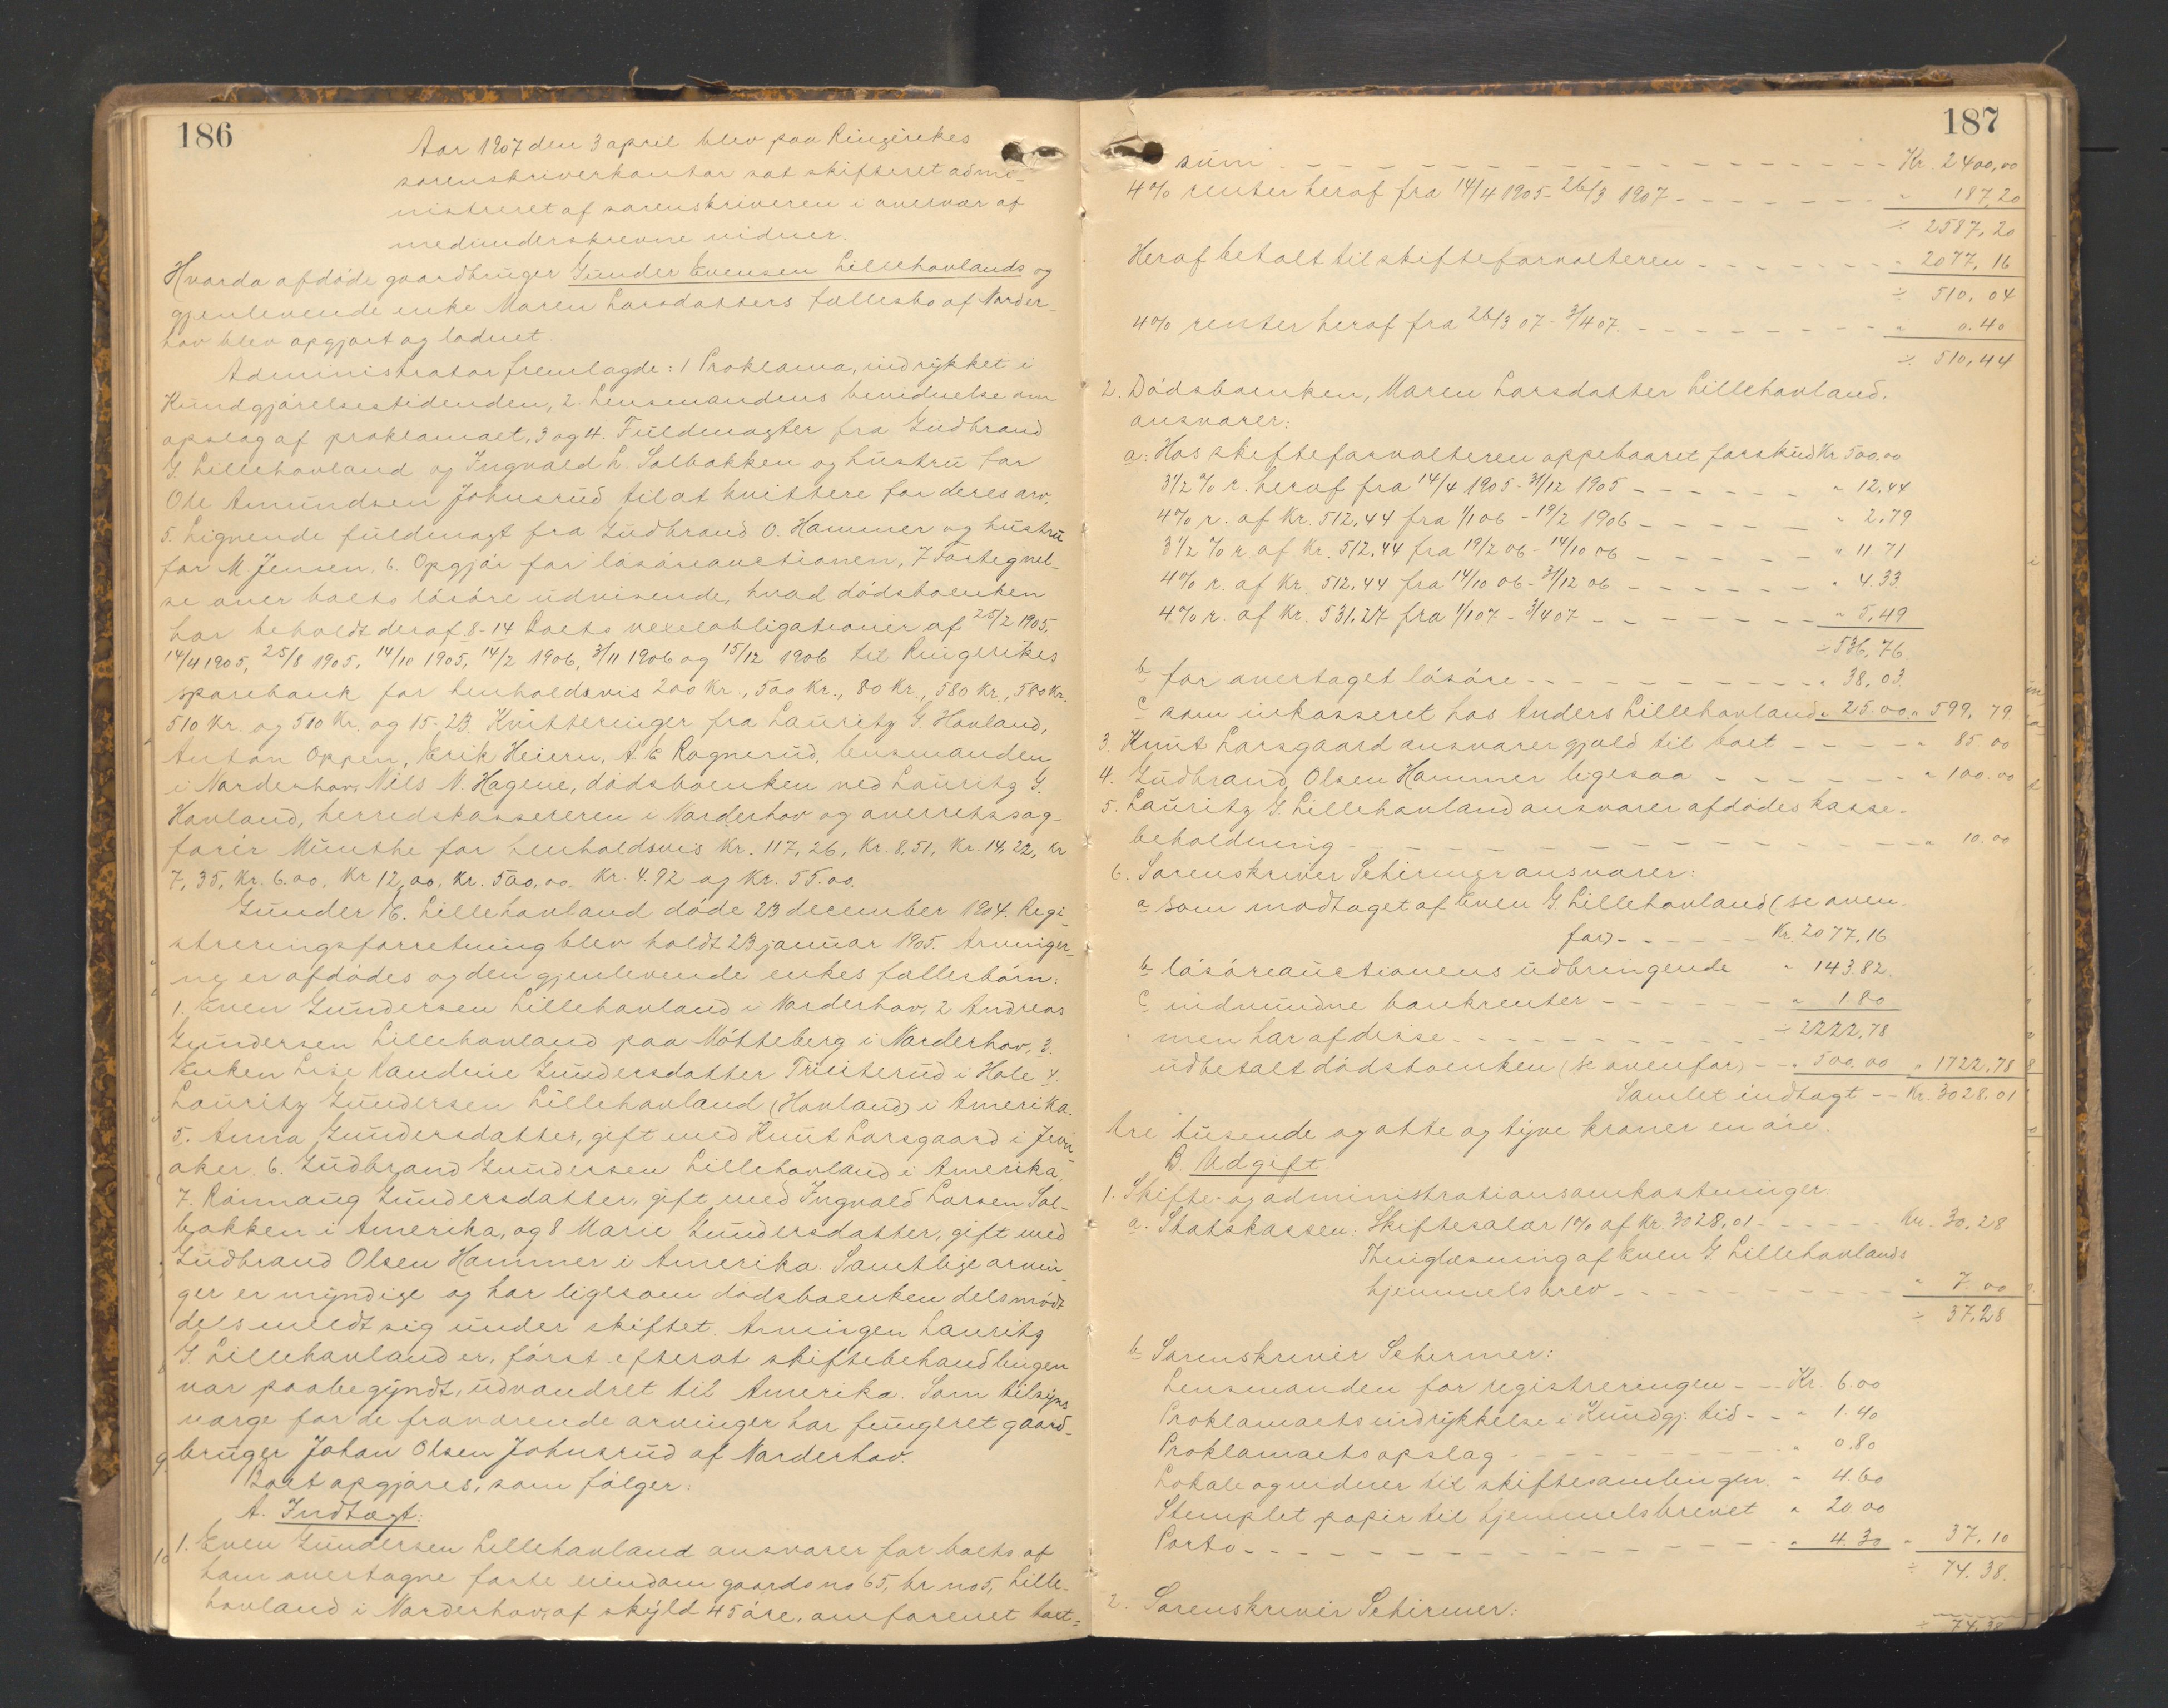 186
Aar 1907 den 3 april blev paa Ringerikes
sorenskriverkontor sat skifteret admi-
nistreret af sorenskriveren i overvær af
medunderskrevne vidner.
Hvorda afdöde gaardbruger Gunder Evensen Lillehovlands og
gjenlevende enke Maren Larsdatters fællesbo af Norder-
hov blev opgjort og lodnet.
Administrator fremlagde: 1 Proklama, indrykket i
Kundgjörelsestidenden, 2. Lensmandens bevidnelse om
opslag af proklamaet, 3 og 4. Fuldmagter fra Gudbrand
G. Lillehovland og Ingvald L. Solbakken og hustru for
Ole Amundsen Johnsrud til at kvittere for deres arv.
5. Lignende fuldmagt fra Gudbrand O. Hammer og hustru
for M. Jensen, 6. Opgjör for lösöreauctionen, 7 Fortegnel-
se over boets lösöre udvisende, hvad dödsboenken
har beholdt deraf. 8-14 Boets vexelobligationer af 25/2 1905,
14/4 1905, 25/8 1905, 14/10 1905, 14/2 1906, 3/11 1906 og 15/12 1906 til Ringerikes
sparebank for henholdsvis 200 Kr., 500 Kr., 80 Kr., 580 Kr., 580 Kr.
510 Kr. og 510 Kr. og 15-23 Kvitteringer fra Lauritz G. Hovland,
Anton Oppen, Erik Heiern, A E Rognerud, lensmanden
i Norderhov, Nils N. Hagene, dödsboenken ved Lauritz G.
Hovland, herredskassereren i Norderhov og overretssag-
förer Münthe for henholdsvis Kr. 117,26, Kr. 8.51, Kr. 14,22, Kr
7,35, Kr. 6.00, Kr 12,00, Kr. 500,00. Kr. 4.92 og Kr. 55.00.
Gunder E. Lillehovland döde 23 december 1904. Regi-
streringsforretning blev holdt 23 januar 1905. Arvinger-
ne er afdödes og den gjenlevende enkes fællesbörn:
1. Even Gundersen Lillehovland i Norderhov, 2 Andreas
Gundersen Lillehovland paa Mötteberg i Norderhov, 3.
Enken Lise Gundersdatter i Hole 4.
Lauritz Gundersen Lillehovland (Hovland) i Amerika.
5. Anna Gundersdatter, gift med Knut Larsgaard i Jevn-
aker. 6. Gudbrand Gundersen Lillehovland i Amerika,
7. Rönnaug Gundersdatter, gift med Ingvald Larsen Sol-
bakken i Amerika, og 8 Marie Gundersdatter, gift med
Gudbrand Olsen Hammer i Amerika. Samtlige arvin-
ger er myndige og har ligesom dödsboenken dels mödt
dels meldt sig under skiftet. Arvingen Lauritz
G. Lillehovland er, först efterat skiftebehandlingen
var paabegyndt, udvandret til Amerika. Som tilsyns
værge for de fraværende arvinger har fungeret gaard-
bruger Johan Olsen Johnsrud af Norderhov.
Boet opgjöres, som fölger:
A. Indtægt:
1. Even Gundersen Lillehovland ansvarer for boets af
ham overtagne faste eiendom gaards no 65, br no 5, Lille-
hovland i Norderhov, af skyld 45 öre, omforenet taxt-
187
sum - - - Kr. 2400,00
4% renter heraf fra 14/4 1905- 26/3 1907 - - - " 187,20
÷ 2587,20
Heraf betalt til skifteforvalteren - - - " 2077,16
÷ 510,04
4% renter heraf fra 26/3 07 - 3/4 07. - - - " 0.40
÷ 510,44
2. Dödsboenken, Maren Larsdatter Lillehovland,
ansvarer:
a: Hos skifteforvalteren oppebaaret forskud Kr 500.00
3 1/2 % r. heraf fra 14/4 1905 - 31/12 1905 - - - " 12,44
4% r. af Kr. 512.44 fra 1/1 06 - 19/2 1906 - - - " 2,79
3 1/2 % r. af Kr. 512,44 fra 19/2 06 - 14/10 06 - - - " 11.71
4% r. af Kr. 512,44 fra 14/10 06 - 31/12 06 - - - " 4.33
4% r. af Kr. 531.27 fra 1/1 07 - 3/4 07 - - - " 5,49
÷ 536,76
b for overtaget lösöre - - - " 38,03
c som inkasseret hos Anders Lillehovland " 25.00 " 599,79
3. Knut Larsgaard ansvarer gjæld til boet - - - " 85.00
4. Gudbrand Olsen Hammer ligesaa - - - " 100.00
5. Lauritz G. Lillehovland ansvarer afdödes kasse-
beholdning - - - " 10.00
6. Sorenskriver Schirmer ansvarer:
a som modtaget af Even G. Lillehovland (se oven-
for) - - - Kr. 2077,16
b lösöreauctionens udbringende " 143.82
c indvundne bankrenter - - - " 1.80
men har af disse - - - ÷ 2222,78
udbetalt dödsboenken (se ovenfor) - - " 500.00 " 1722,78
Samlet indtægt - - Kr. 3028,01
tre tusende og otte og tyve kroner en öre.
B. Udgift.
1. Skifte- og administrationsomkostninger:
a. Statskassen: Skiftesalær 1% af Kr. 3028,01 - - - Kr. 30,28
Thinglæsning af Even G. Lillehovlands
hjemmelsbrev - - - " 7.00
÷ 37.28
b Sorenskriver Schirmer:
Lensmanden for registreringen - - Kr. 6.00
Proklamaets indrykkelse i Kundgj. tid - - " 1.40
Proklamaets opslag - - - " 0.80
Lokale og vidner til skiftesamlingen. " 4.60
Stemplet papir til hjemmelsbrevet " 20.00
Porto - - - " 4.30 " 37,10
÷ 74.38.
2. Sorenskriver Schirmer:
÷ 74,38